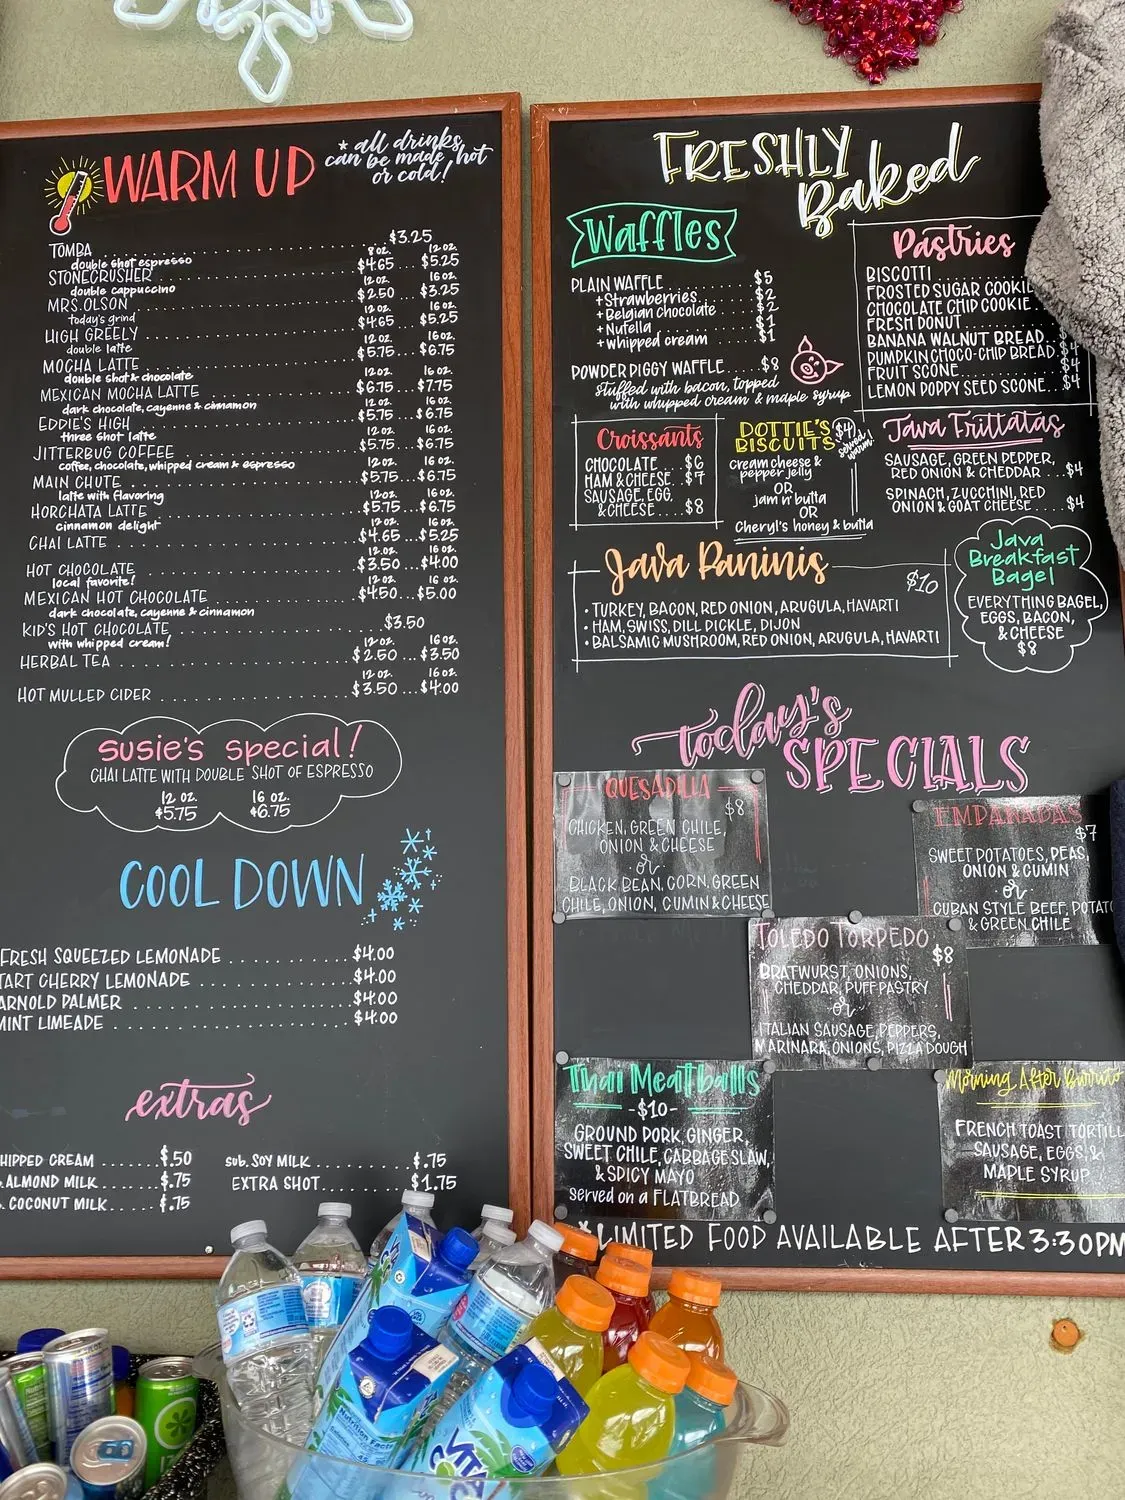 WARM UP
* all drinks
can be made hot
or cold!
TOMBA $3.25
double shot espresso
8 oz. 12 oz.
STONECRUSHER $4.65 $5.25
double cappuccino
12 oz. 16 oz.
MRS. OLSON $2.50 $3.25
today's grind
12 oz. 16 oz.
HIGH GREELY $4.65 $5.25
double latte
12 oz. 16 oz.
MOCHA LATTE $5.75 $6.75
double shot & chocolate
12 oz. 16 oz.
MEXICAN MOCHA LATTE $6.75 $7.75
dark chocolate, cayenne & cinnamon
12 oz. 16 oz.
EDDIE'S HIGH $5.75 $6.75
three shot latte
12 oz. 16 oz.
JITTERBUG COFFEE $5.75 $6.75
coffee, chocolate, whipped cream & espresso
12 oz. 16 oz.
MAIN CHUTE $5.75 $6.75
latte with flavoring
12 oz. 16 oz.
HORCHATA LATTE $5.75 $6.75
cinnamon delight
12 oz. 16 oz.
CHAI LATTE $4.65 $5.25
12 oz. 16 oz.
HOT CHOCOLATE $3.50 $4.00
local favorite!
12 oz. 16 oz.
MEXICAN HOT CHOCOLATE $4.50 $5.00
dark chocolate, cayenne & cinnamon
KID'S HOT CHOCOLATE $3.50
with whipped cream!
12 oz. 16 oz.
HERBAL TEA $2.50 $3.50
12 oz. 16 oz.
HOT MULLED CIDER $3.50 $4.00
susie's special!
CHAI LATTE WITH DOUBLE SHOT OF ESPRESSO
12 OZ. 16 OZ.
$5.75 $6.75
COOL DOWN
FRESH SQUEEZED LEMONADE $4.00
TART CHERRY LEMONADE $4.00
ARNOLD PALMER $4.00
MINT LIMEADE $4.00
extras
HIPPED CREAM $.50
. ALMOND MILK $.75
. COCONUT MILK $.75
sub. SOY MILK $.75
EXTRA SHOT $1.75
FRESHLY
Baked
Waffles
PLAIN WAFFLE $5
+Strawberries $2
+Belgian chocolate $2
+Nutella $1
+whipped cream $1
POWDER PIGGY WAFFLE $8
stuffed with bacon, topped
with whipped cream & maple syrup
Pastries
BISCOTTI
FROSTED SUGAR COOKIE
CHOCOLATE CHIP COOKIE
FRESH DONUT
BANANA WALNUT BREAD
PUMPKIN CHOCO-CHIP BREAD
FRUIT SCONE $4
LEMON POPPY SEED SCONE $4
Croissants
CHOCOLATE $6
HAM & CHEESE $7
SAUSAGE, EGG,
& CHEESE $8
DOTTIE'S
BISCUITS
$4
served warm!
cream cheese &
pepper jelly
OR
jam n' butta
OR
Cheryl's honey & butta
Java Frittatas
SAUSAGE, GREEN PEPPER,
RED ONION & CHEDDAR $4
SPINACH, ZUCCHINI, RED
ONION & GOAT CHEESE $4
Java Paninis
$10
• TURKEY, BACON, RED ONION, ARUGULA, HAVARTI
• HAM, SWISS, DILL PICKLE, DIJON
• BALSAMIC MUSHROOM, RED ONION, ARUGULA, HAVARTI
Java
Breakfast
Bagel
EVERYTHING BAGEL,
EGGS, BACON,
& CHEESE
$8
today's
SPECIALS
QUESADILLA
$8
CHICKEN, GREEN CHILE,
ONION & CHEESE
or
BLACK BEAN, CORN, GREEN
CHILE, ONION, CUMIN & CHEESE
EMPANADAS
$7
SWEET POTATOES, PEAS,
ONION & CUMIN
or
CUBAN STYLE BEEF, POTATO
& GREEN CHILE
TOLEDO TORPEDO
$8
BRATWURST, ONIONS,
CHEDDAR, PUFF PASTRY
or
ITALIAN SAUSAGE, PEPPERS,
MARINARA, ONIONS, PIZZA DOUGH
Thai Meatballs
-$10-
GROUND PORK, GINGER,
SWEET CHILE, CABBAGE SLAW,
& SPICY MAYO
served on a FLATBREAD
Morning After Burrito
FRENCH TOAST TORTILL
SAUSAGE, EGGS, &
MAPLE SYRUP
*LIMITED FOOD AVAILABLE AFTER 3:30PM
Nutrition Facts
VITA